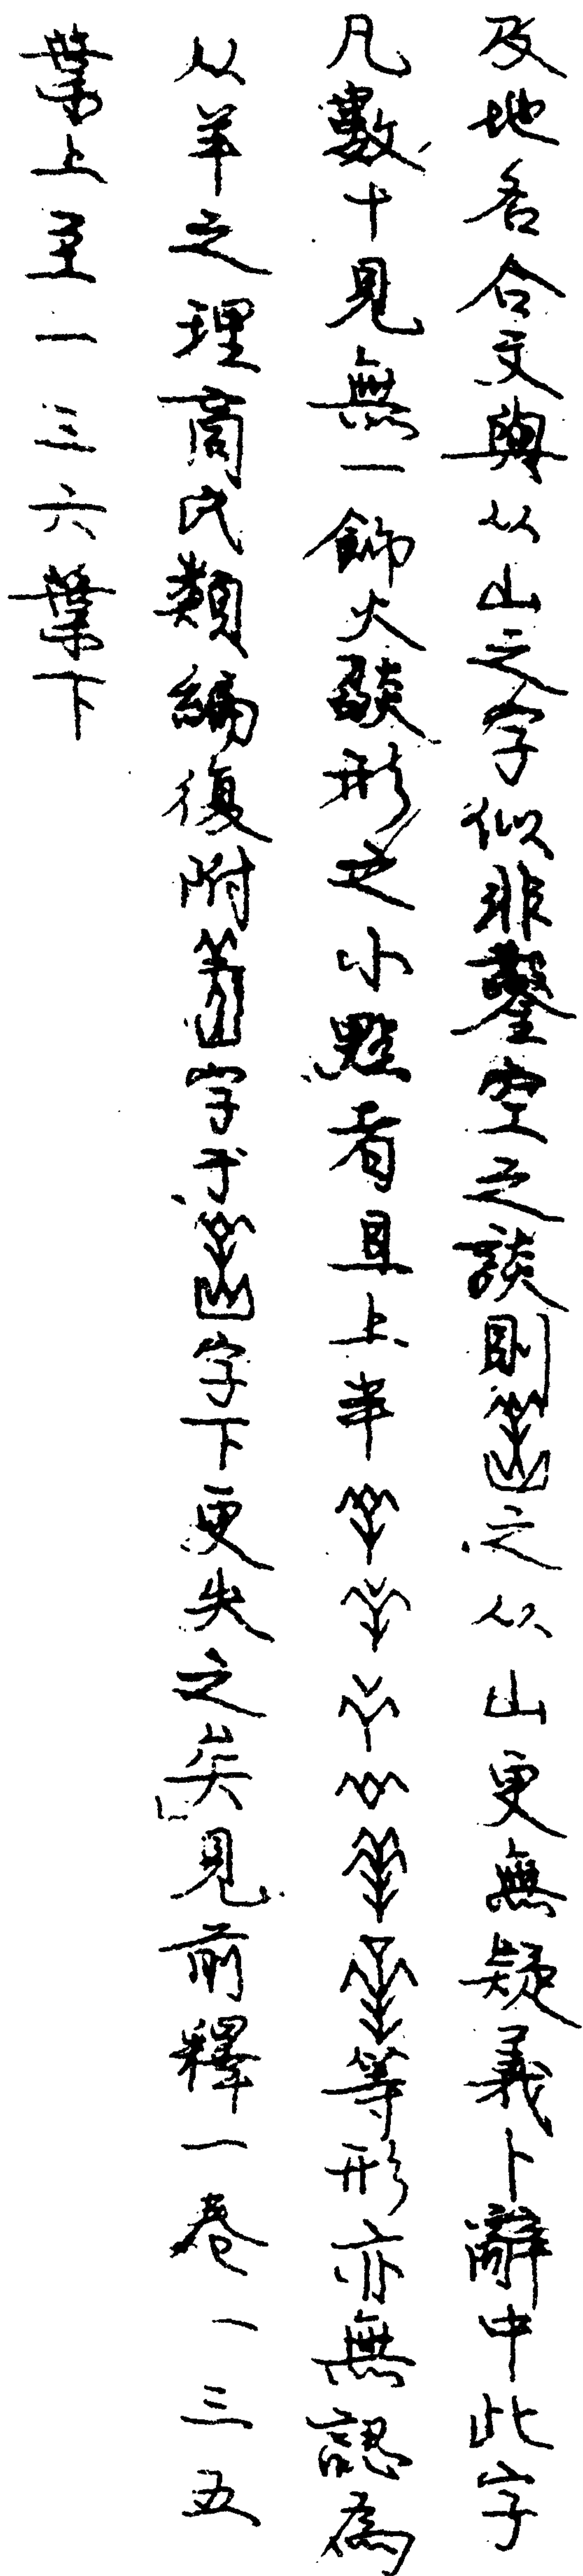 及地名合文與从山之字似非鑿空之談則之从山更無疑義卜辭中此字
凡數十見無一飾火燄形之小點者且上半等形亦無認為
从羊之理商氏類編復附字于字下更失之矣見前釋一卷一三五
葉上至一三六葉下